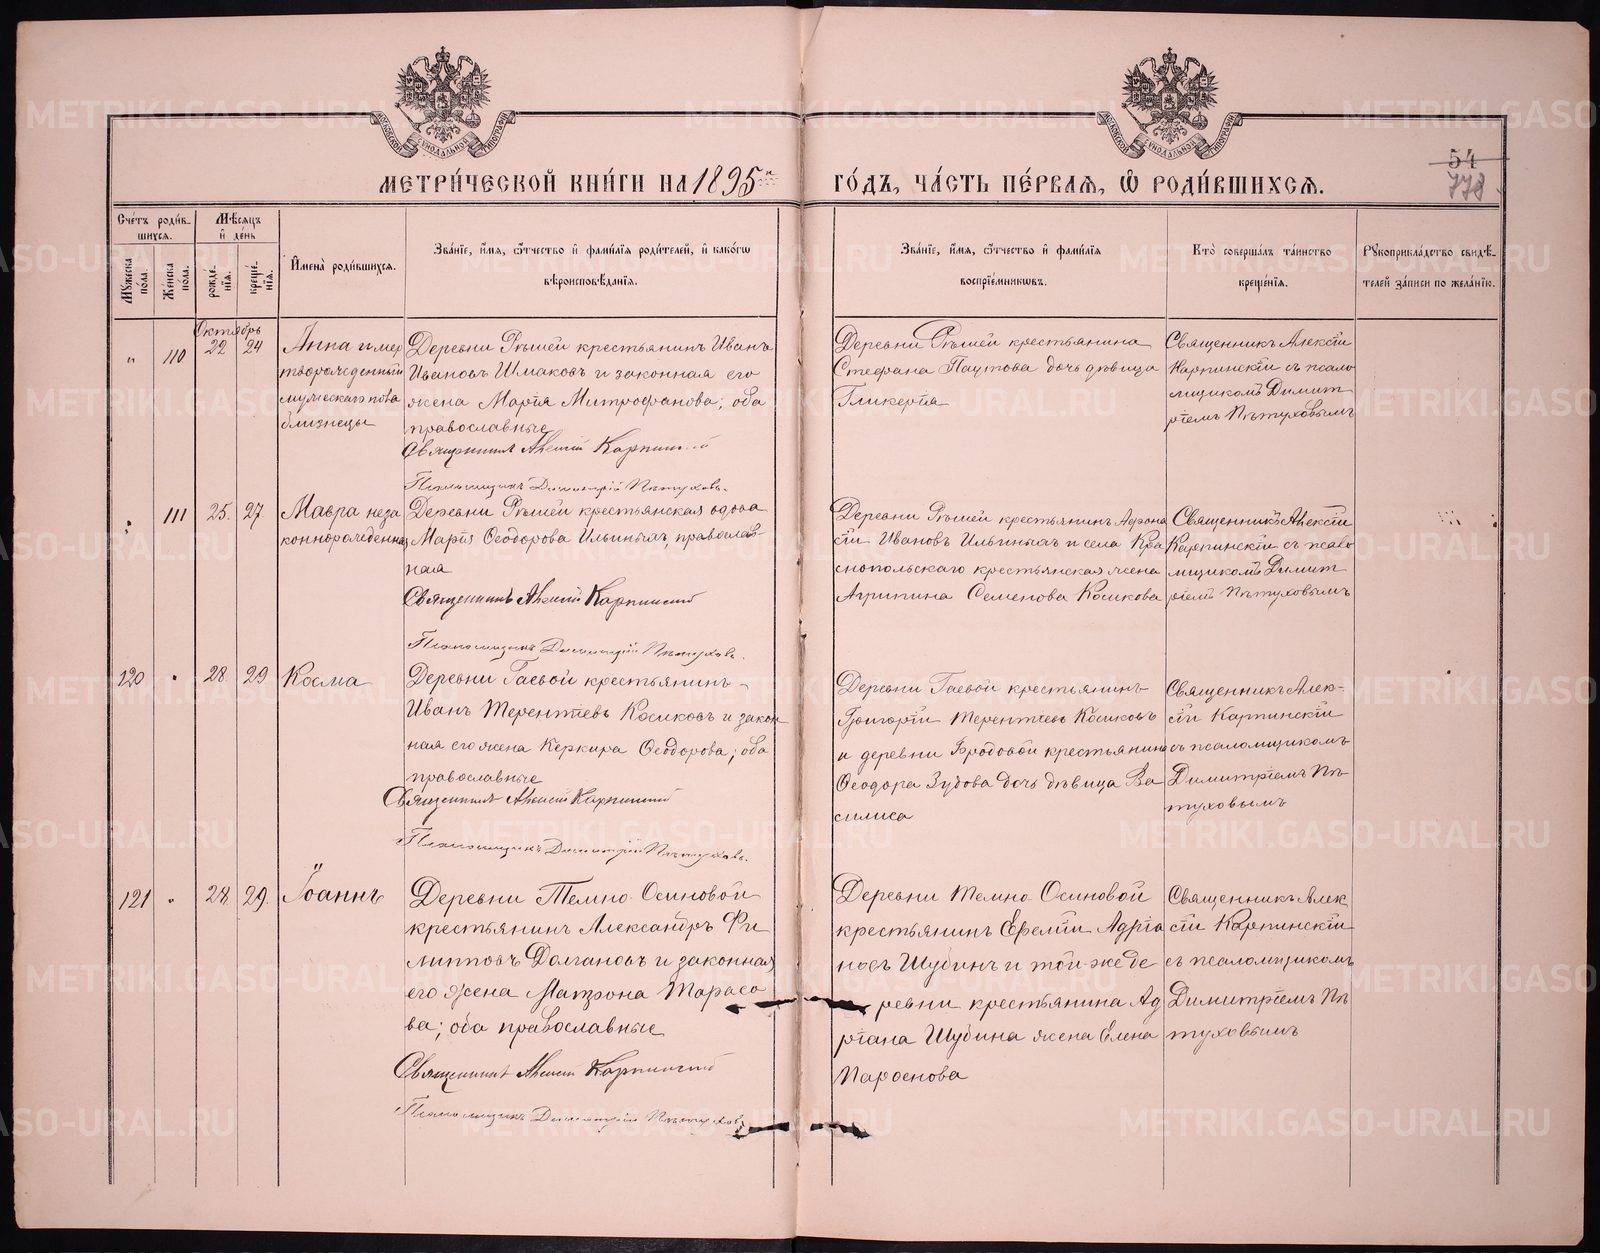 МЕТРИЧЕСКОЙ КНИГИ НА 1895й
ГОДЪ, ЧАСТЬ ПЕРВАЯ, Ѡ РОДИВШИХСЯ.
54
778
Счетъ родив-
шихся.
Мужеска пола.
Женска пола.
Мѣсяцъ
и день
рождe-
нія.
крещe-
нія.
Имена родившихся.
Званіе, имя, отчество и фамилія родителей, и какогѡ
вѣроисповѣданія.
Званіе, имя, отчество и фамилія
воспріемниковъ.
Кто совершалъ таинство
крещенія.
Рукоприкладство свидѣ-
телей записи по желанію.
Октябрь
" 110 22 24
Анна и мер
творожденный
мужескаго пола
близнецы
Деревни Рѣшей крестьянинъ Иванъ
Ивановъ Шмаковъ и законная его
жена Марія Митрофанова; оба
православные
Священникъ Алексій Карпинскій
Псаломщикъ Димитрій Пѣтуховъ.
Деревни Рѣшей крестьянина
Стефана Паутова дочь дѣвица
Гликерія
Священникъ Алексій
Карпинскій съ псало
мщикомъ Димит
ріемъ Пѣтуховымъ
" 111 25. 27.
Мавра неза
коннорожденная
Деревни Рѣшей крестьянская вдова
Марія Ѳеодорова Ильиныхъ, православ-
ная
Священникъ Алексій Карпинскій
Псаломщикъ Димитрій Пѣтуховъ.
Деревни Рѣшей крестьянинъ Афона
сій Ивановъ Ильиныхъ и села Кра
снопольскаго крестьянская жена
Агрипина Семенова Косикова
Священникъ Алексій
Карпинскій съ псало
мщикомъ Димит
ріемъ Пѣтуховымъ
120 " 28. 29
Косма
Деревни Гаевой крестьянинъ
Иванъ Терентіевъ Косиковъ и закон
ная его жена Керкира Ѳеодорова; оба
православные
Священникъ Алексій Карпинскій
Псаломщикъ Димитрій Пѣтуховъ.
Деревни Гаевой крестьянинъ
Григорій Терентіевъ Косиковъ
и деревни Бродовой крестьянина
Ѳеодора Зубова дочь дѣвица Ва
силиса
Священникъ Алек-
сій Карпинскій
съ псаломщикомъ
Димитріемъ Пѣ
туховымъ
121 " 28. 29.
Іоаннъ
Деревни Темно-Осиновой
крестьянинъ Александръ Фи
липповъ Долгановъ и законная
его жена Матрона Тарасо
ва; оба православные
Священникъ Алексій Карпинскій
Псаломщикъ Димитрій Пѣтуховъ
Деревни Темно Осиновой
крестьянинъ Ефелій Адріа
новъ Шубинъ и той-же де
ревни крестьянина Ад
ріана Шубина жена Елена
Парѳенова
Священникъ Алек
сій Карпинскій
съ псаломщикомъ
Димитріемъ Пѣ
туховымъ